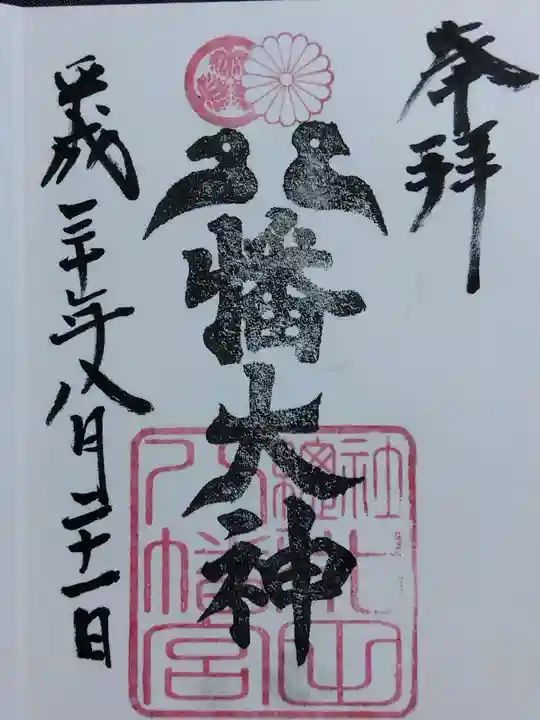 奉拝
八幡大神
平成三十年八月二十一日
八幡宮